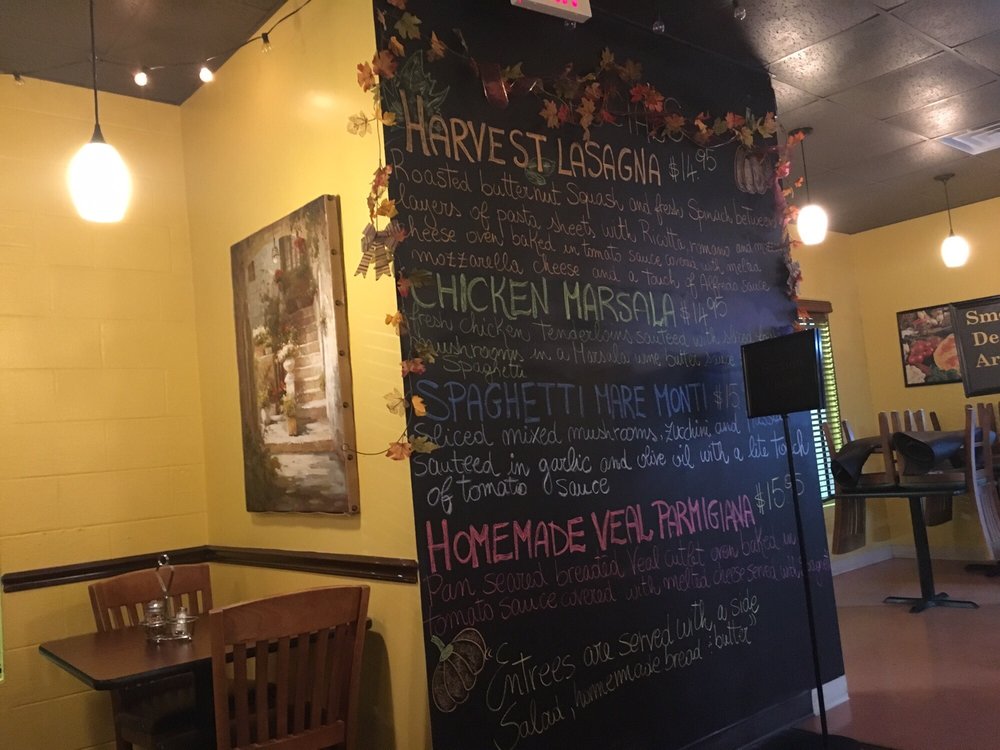 HARVEST LASAGNA $14.95
Roasted butternut Squash and fresh Spinach between
layers of pasta sheets with Ricotta, romano and
cheese oven baked in tomato sauce covered with melted
mozzarella cheese and a touch of Alfredo sauce
CHICKEN MARSALA $14.95
fresh chicken Tenderloins sauteed with sliced
mushrooms in a Marsala wine butter sauce
Spaghetti
SPAGHETTI MARE MONTI $15
Sliced mixed mushrooms, Zucchini and
sauteed in garlic and olive oil with a lite touch
of tomato sauce
HOMEMADE VEAL PARMIGIANA $15.95
Pan seared breaded Veal cutlet oven baked in
tomato sauce covered with melted cheese served with
"Entrees are served with a side
Salad, homemade bread + butter"
Smo
De
An